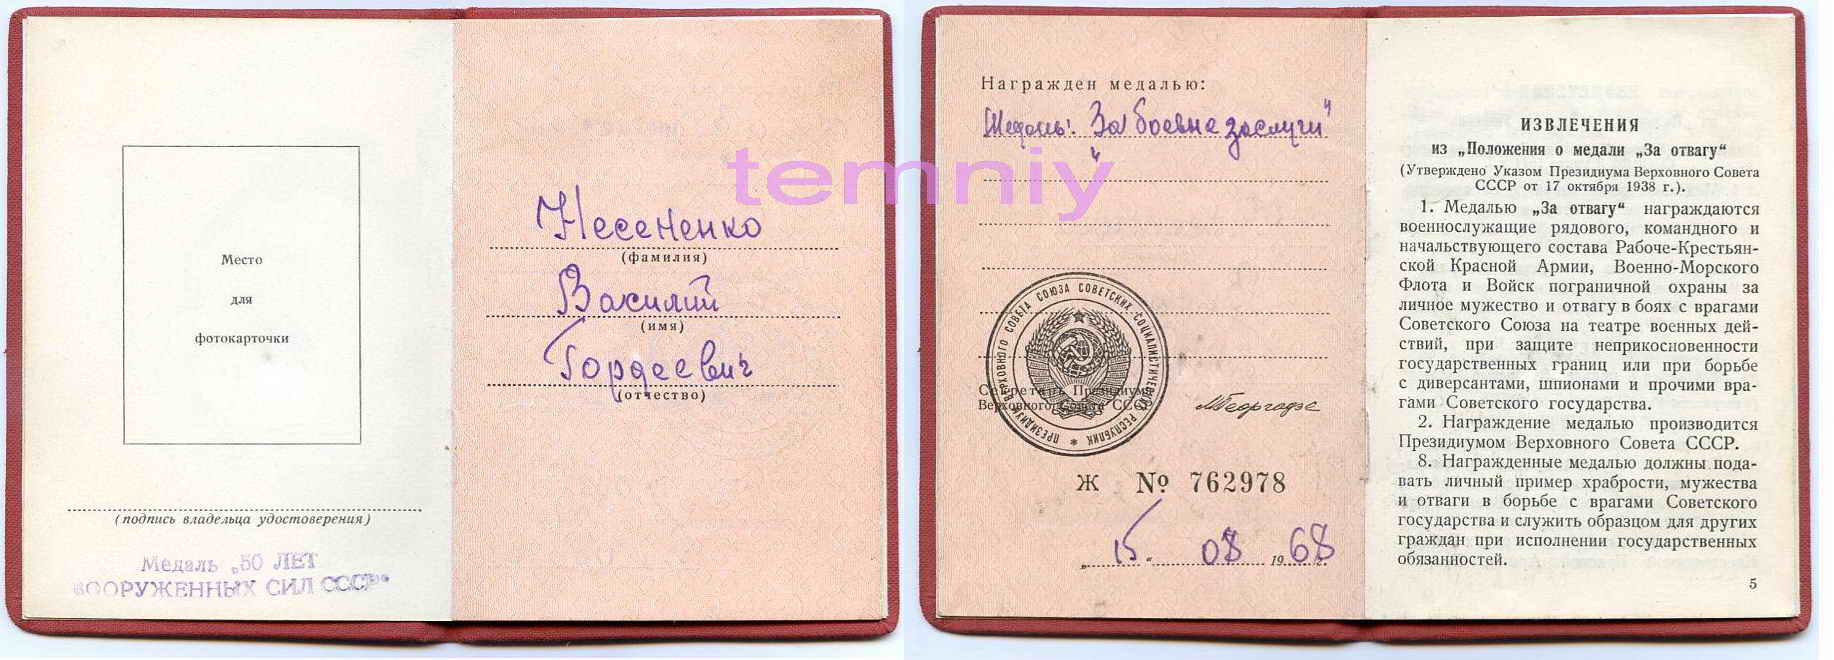 Место
для
фотокарточки
(подпись владельца удостоверения)
Медаль „50 ЛЕТ
ВООРУЖЕННЫХ СИЛ СССР“
Несененко
(фамилия)
Василий
(имя)
Гордеевич
(отчество)
temniy
Награжден медалью:
Медаль: „За боевые заслуги"
ПРЕЗИДИУМ ВЕРХОВНОГО СОВЕТА СОЮЗА СОВЕТСКИХ СОЦИАЛИСТИЧЕСКИХ РЕСПУБЛИК *
Секретарь Президиума
Верховного Совета СССР
МГеоргадзе
Ж № 762978
„15“ 08 1968 г.
ИЗВЛЕЧЕНИЯ
из „Положения о медали „За отвагу“
(Утверждено Указом Президиума Верховного Совета
СССР от 17 октября 1938 г.).
1. Медалью „За отвагу“ награждаются
военнослужащие рядового, командного и
начальствующего состава Рабоче-Крестьян-
ской Красной Армии, Военно-Морского
Флота и Войск пограничной охраны за
личное мужество и отвагу в боях с врагами
Советского Союза на театре военных дей-
ствий, при защите неприкосновенности
государственных границ или при борьбе
с диверсантами, шпионами и прочими вра-
гами Советского государства.
2. Награждение медалью производится
Президиумом Верховного Совета СССР.
8. Награжденные медалью должны пода-
вать личный пример храбрости, мужества
и отваги в борьбе с врагами Советского
государства и служить образцом для других
граждан при исполнении государственных
обязанностей.
5